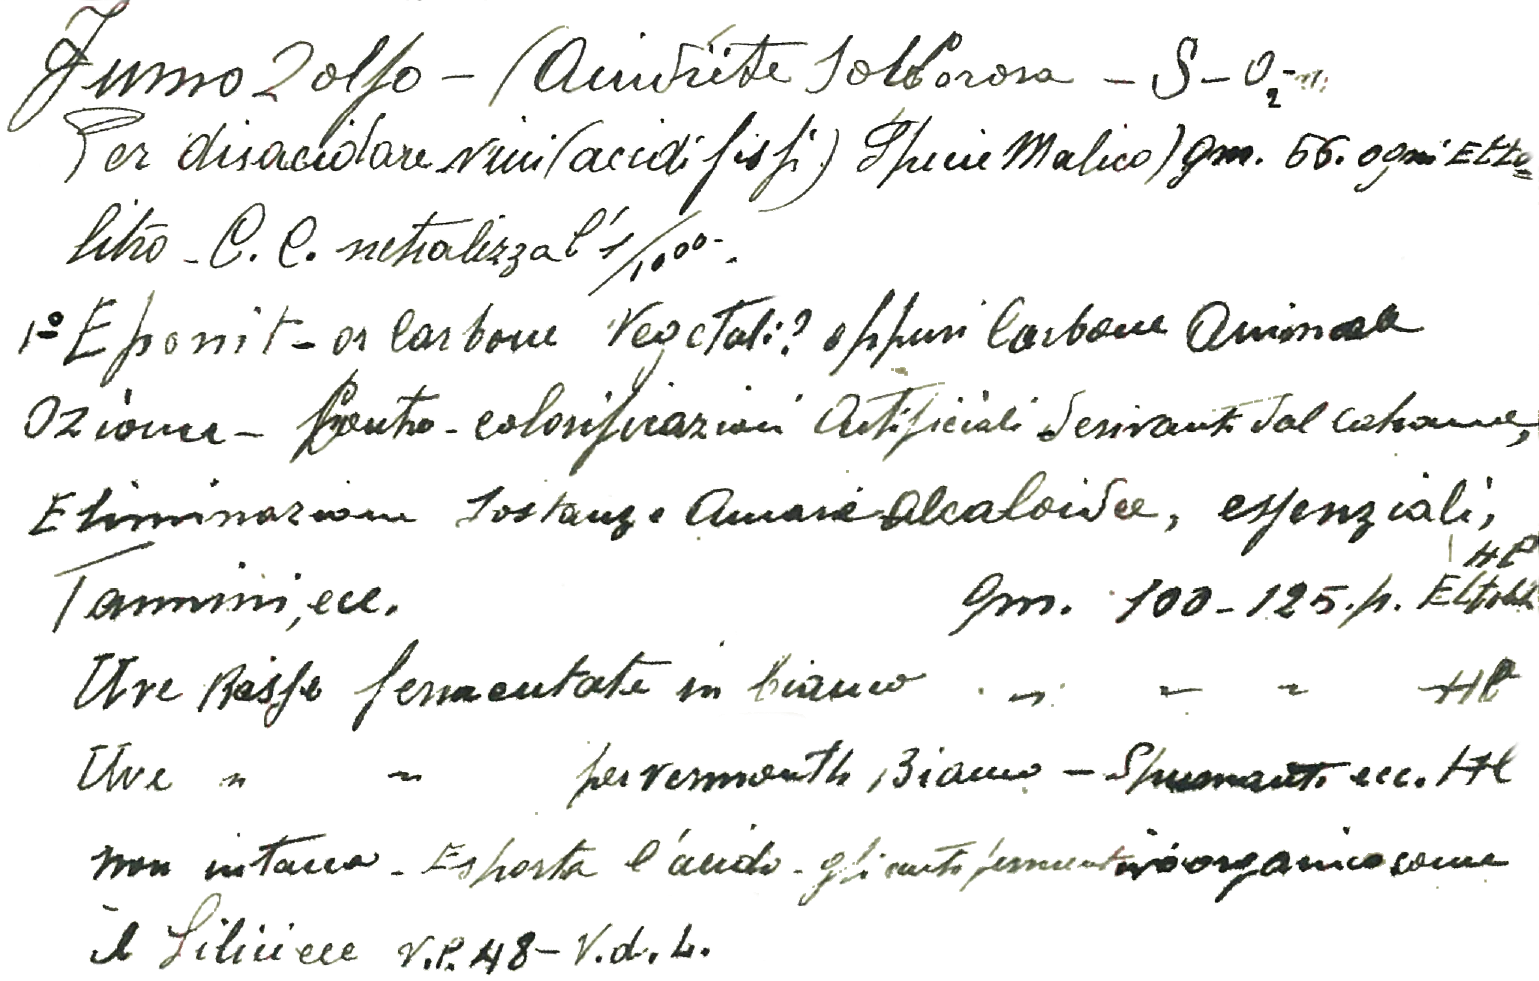 Fumo Zolfo - (Anidrite Solforosa - S - O2 -
Per disacidare vini (acidi fissi) Specie Malico) gm. 66. ogni Etto=
litro - C. C. netralizza l'1/1000 -.
1º Eponit - or Carbone Vegetali? oppuri Carbone Animale
Ozione - Contro - colorificazioni Artificiali derivanti dal catrame,
Eliminazione Sostanze Amare alcaloidee, essenziali,
Tannini, ecc. gm. 100 - 125. p. Ettol. HL
Uve Rosse fermentate in bianco " " " HL
Uve " " per vermouth Bianco - Spumanti ecc. HL
non intacca - Esporta l'acido - gli antifermentivi organici come
il Silici ecc V.P. 48 - V. d. L.